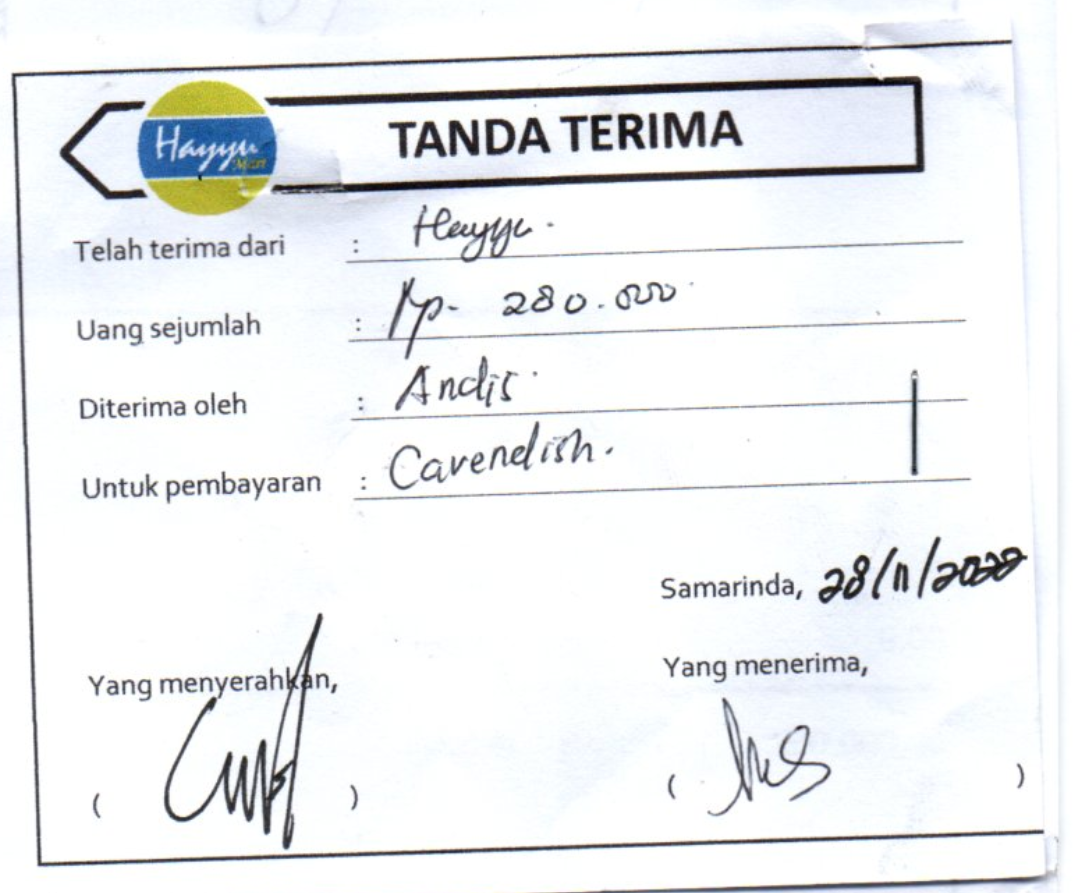 Hayyu
Mart
TANDA TERIMA
Telah terima dari : Hayyu.
Uang sejumlah : Rp. 280.000
Diterima oleh : Andis.
Untuk pembayaran : Cavendish.
Samarinda, 28/11/2022
Yang menyerahkan,
Yang menerima,
( )
( )